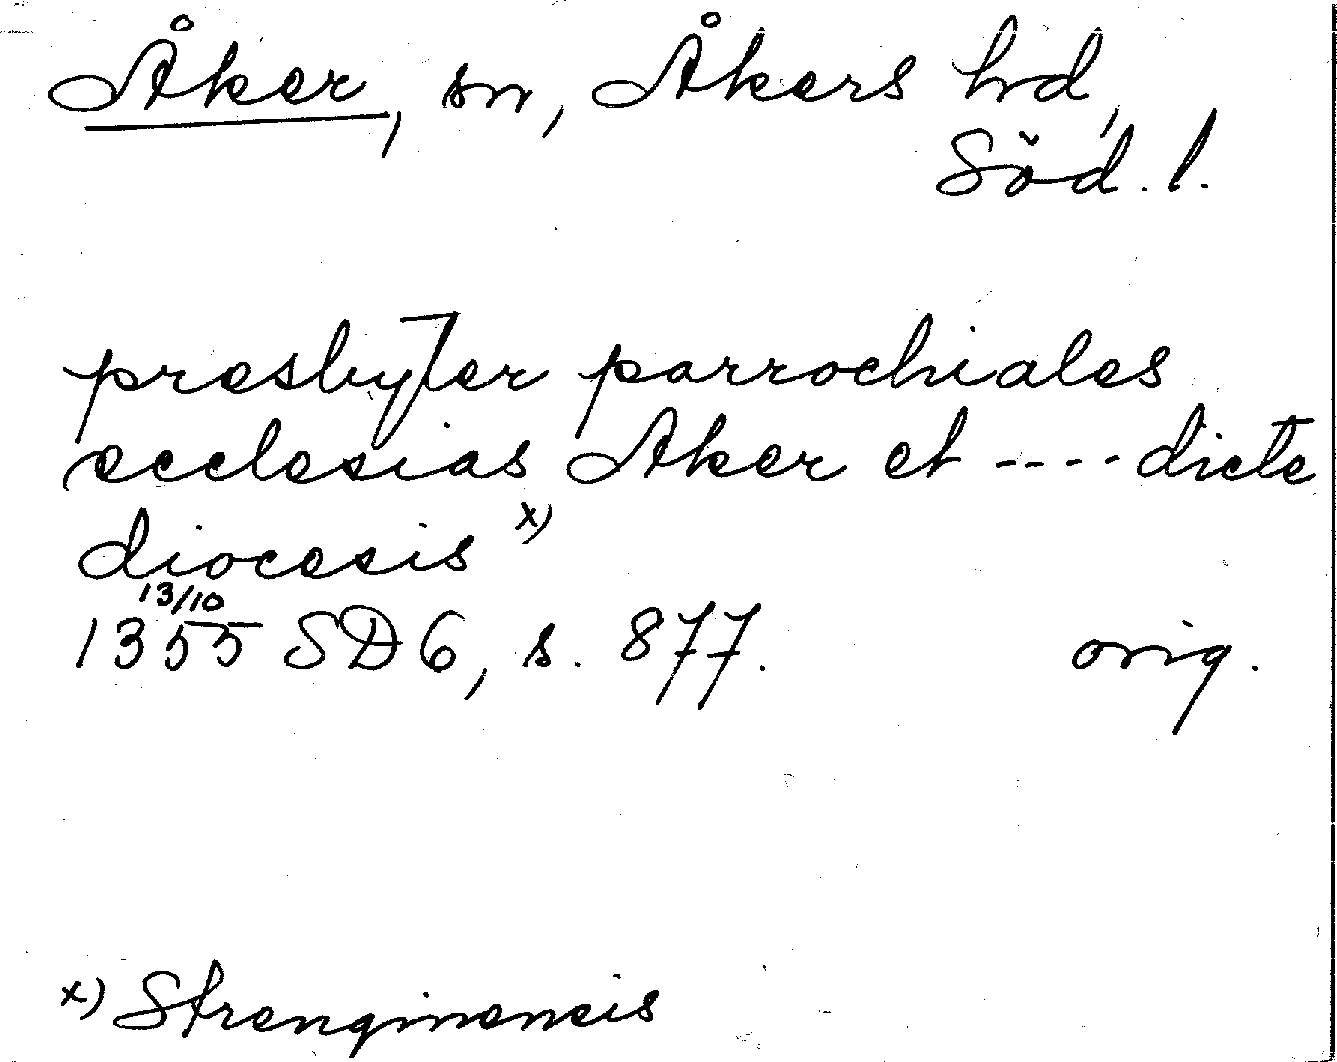 Åker, sn, Åkers hd,
Söd. l.
presbyter parrochiales
ecclesias Aker et ---- dicte
diocesis x)
13/10
1355 SD 6, s. 877. orig.
x) Strenginensis